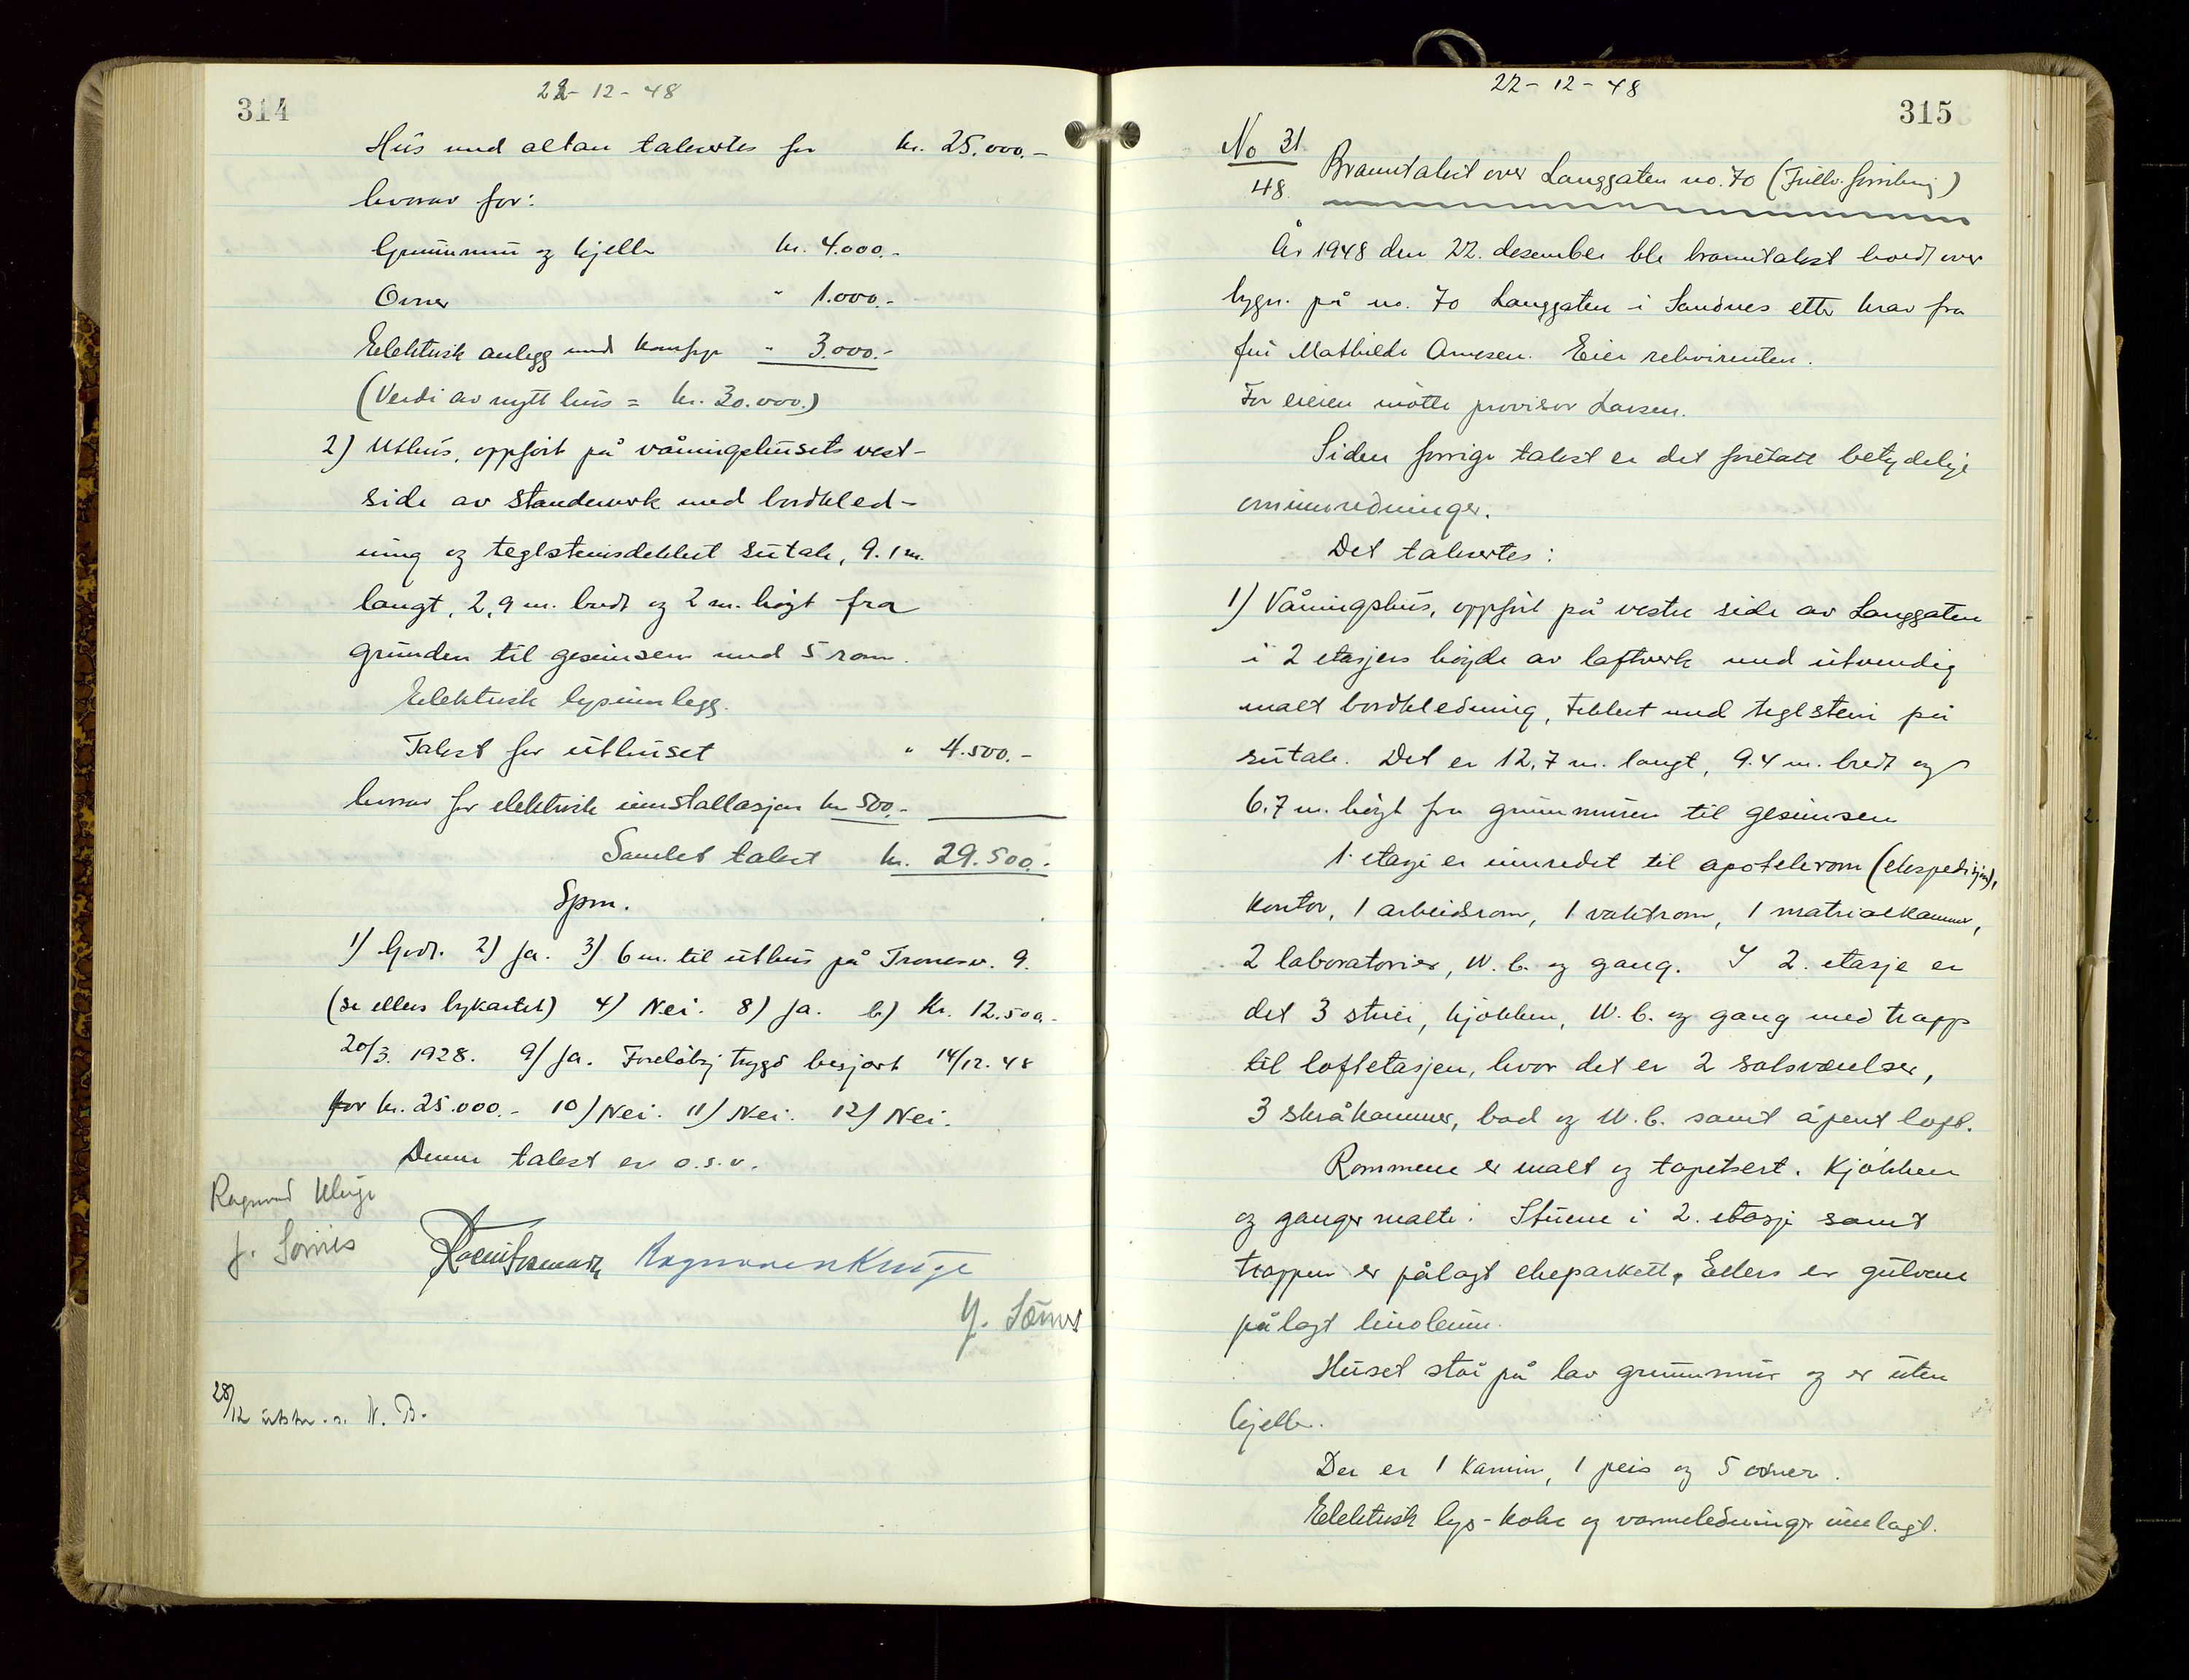 314
22-12-48
Hus med altan takseres for kr. 25.000.-
hvorav for:
Grunnmur og kjeller kr. 4.000.-
Ovner " 1.000.-
Elektrisk anlegg med komfyr " 3.000.-
(Verdi av nytt hus = kr. 30.000.)
2) Uthus, oppført på våningshusets vest-
side av standerverk med bordkled-
ning og teglstensdekket sutak, 9.1 m.
langt, 2,9 m. bredt og 2 m. høgt fra
grunnen til gesimsen med 5 rom.
Elektrisk lysinnlegg.
Takst for uthuset " 4.500.-
hvorav for elektrisk innstallasjon kr 500.-
Samlet takst kr. 29.500.-
Spm.
1) Godt. 2) Ja. 3) 6 m. til uthus på Tronesv. 9.
(se ellers bykartet) 4) Nei. 8) Ja. b) kr. 12.500.-
20/3. 1928. 9) Ja. Foreløbig trygd besjort 14/12. 48
for kr. 25.000.- 10) Nei. 11) Nei. 12) Nei.
Denne takst er o.s.v.
Ragnvald Kluge
J. Sømes
Ragnvald Kluge
J. Sømes
28/12 utskr. s. N. B.
315
22-12-48
No 31
48.
Branntakst over Langgaten no. 70 (Fullv. forsikring)
År 1948 den 22. desember ble branntakst holdt over
bygn. på no. 70 Langgaten i Sandnes etter krav fra
fru Mathilde Arnesen. Eier rekvirenten.
For eieren møtte provisor Larsen.
Siden forrige takst er det foretatt betydelige
ominnredninger.
Det takseres:
1) Våningshus, oppført på vestre side av Langgaten
i 2 etasjers høyde av laftverk med utvendig
malt bordkledning, tekket med teglstein på
sutak. Det er 12,7 m. langt, 9.4 m. bredt og
6.7 m. høgt fra grunnmuren til gesimsen
1. etasje er innredet til apotekrom (ekspedisjon),
kontor, 1 arbeidsrom, 1 vaktrom, 1 matrialkammer,
2 laboratorier, W. C. og gang. I 2. etasje er
det 3 stuer, kjøkken, W. C. og gang med trapp
til loftetasjen, hvor det er 2 soveværelser,
3 skråkammer, bad og W. C. samt åpent loft.
Rommene er malt og tapetsert. Kjøkken
og ganger malte. Stuene i 2. etasje samt
trappen er pålagt ekeparkett. Ellers er gulvene
pålagt linoleum.
Huset står på lav grunnmur og er uten
kjeller.
Der er 1 kamin, 1 peis og 5 ovner.
Elektrisk lys-koke og varmeledninger innlagt.